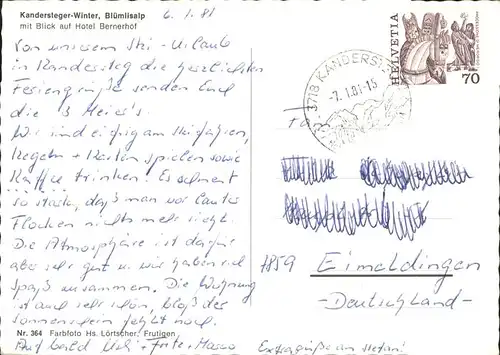 Kandersteger-Winter, Blümlisalp
mit Blick auf Hotel Bernerhof
6.1.81
Von unserem Ski-Urlaub
in Kandersteg die herzlichsten
Feriengrüße senden Euch
die 3 Meier's.
Wir sind eifrig am Skifahren,
Kegeln + Karten spielen sowie
Kaffee trinken. Es schneit
so stark, daß man vor lauter
Flocken nichts mehr sieht.
Die Atmosphäre ist dafür
aber sehr gut u. wir haben viel
Spaß zusammen. Die Wohnung
ist auch sehr schön, bloß der
Sonnenschein fehlt noch.
Nr. 364 Farbfoto Hs. Lörtscher, Frutigen
Auf bald
Extragrüße an Stefan!
3718 KANDERSTEG
-7.1.81-15
HELVETIA
70
Fam.
7859 Eimeldingen
-Deutschland-